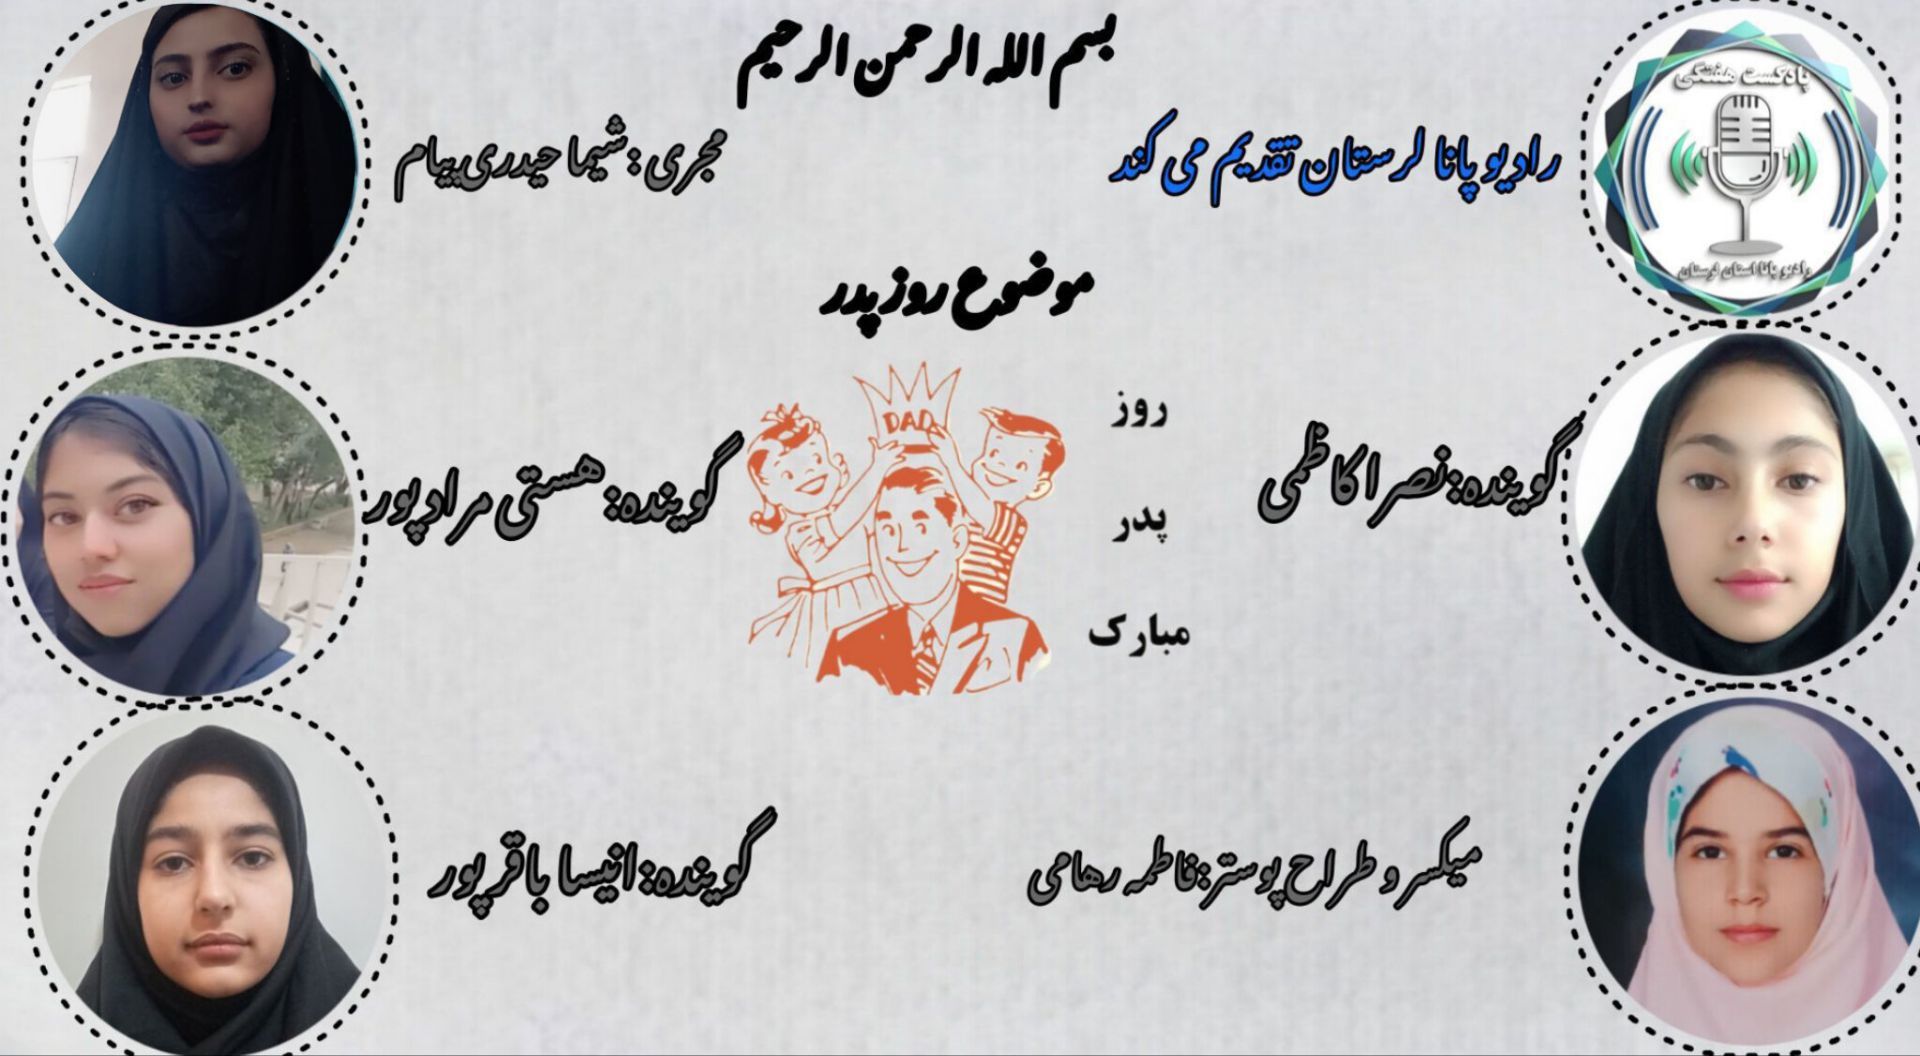 بسم الله الرحمن الرحیم
پادکست هفتگی
رادیو پانا استان لرستان
رادیو پانا لرستان تقدیم می کند
مجری : شیما حیدری پیام
موضوع روز پدر
DAD
روز
پدر
مبارک
گوینده: نصرا کاظمی
گوینده: هستی مرادپور
میکسر و طراح پوستر: فاطمه رهامی
گوینده: انیسا باقرپور